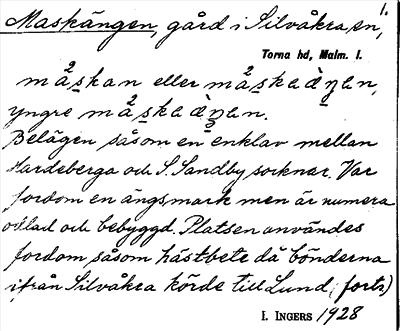 1.
Maskängen, gård i Silvåkra, sn,
Torna hd, Malm. l.
måskan eller måskaàŋan,
yngre måskaàŋan.
Belägen såsom en enklav mellan
Hardeberga och S. Sandby socknar. Var
fordom en ängsmark men är numera
odlad och bebyggd. Platsen användes
fordom såsom hästbete då bönderna
ifrån Silvåkra körde till Lund, (forts)
I. INGERS 1928